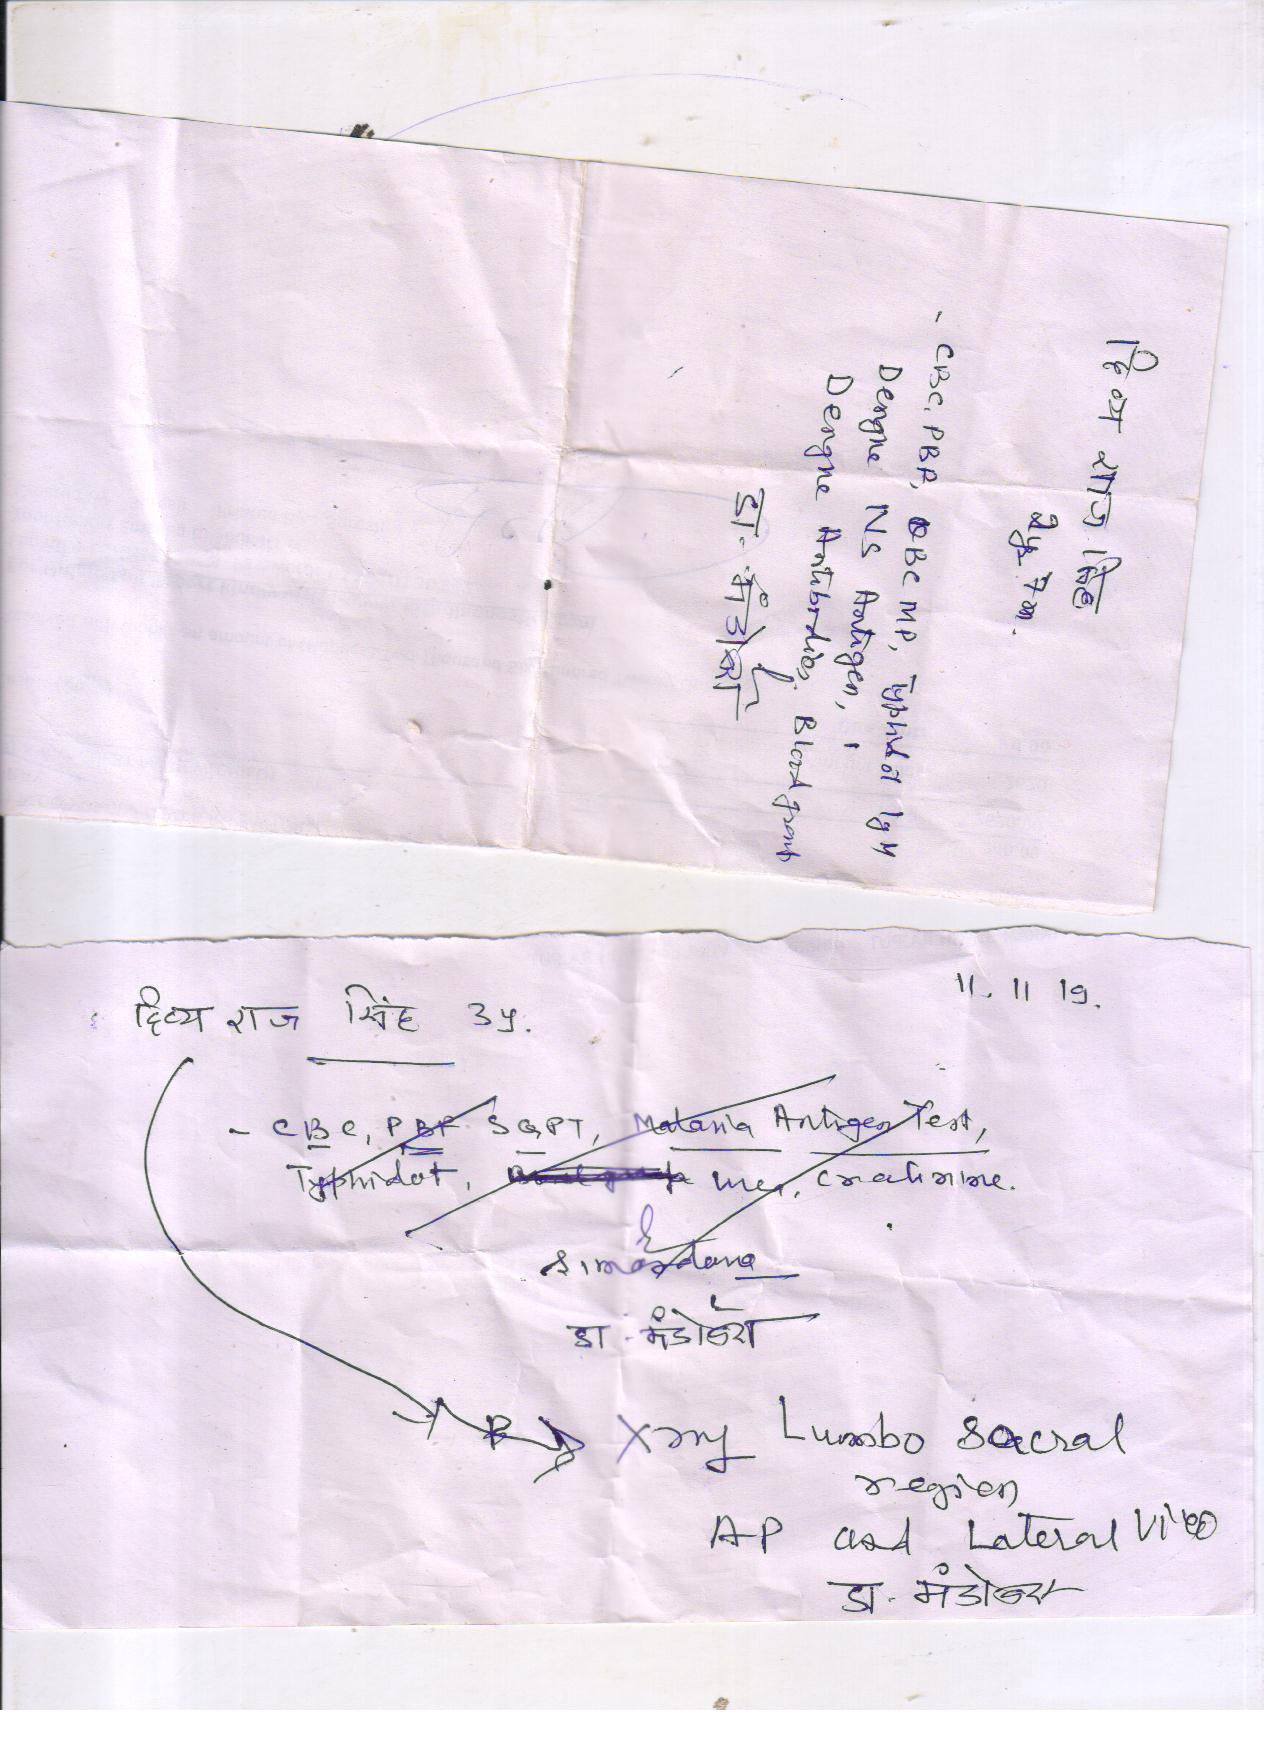 दिव्य राज सिंह
2yr 7m.
- CBC, PBF, QBC MP, Typhidot IgM
Dengue NS Antigen,
Dengue Antibodies, Blood group
डा. मंडोवरा
11.11 19.
दिव्य राज सिंह 3y.
- CBC, PBF SGPT, Malaria Antigen Test,
Typhidot, urea, creatinine.
डा. मंडोवरा
Xray Lumbo Sacral
region
AP and Lateral View
डा. मंडोवरा